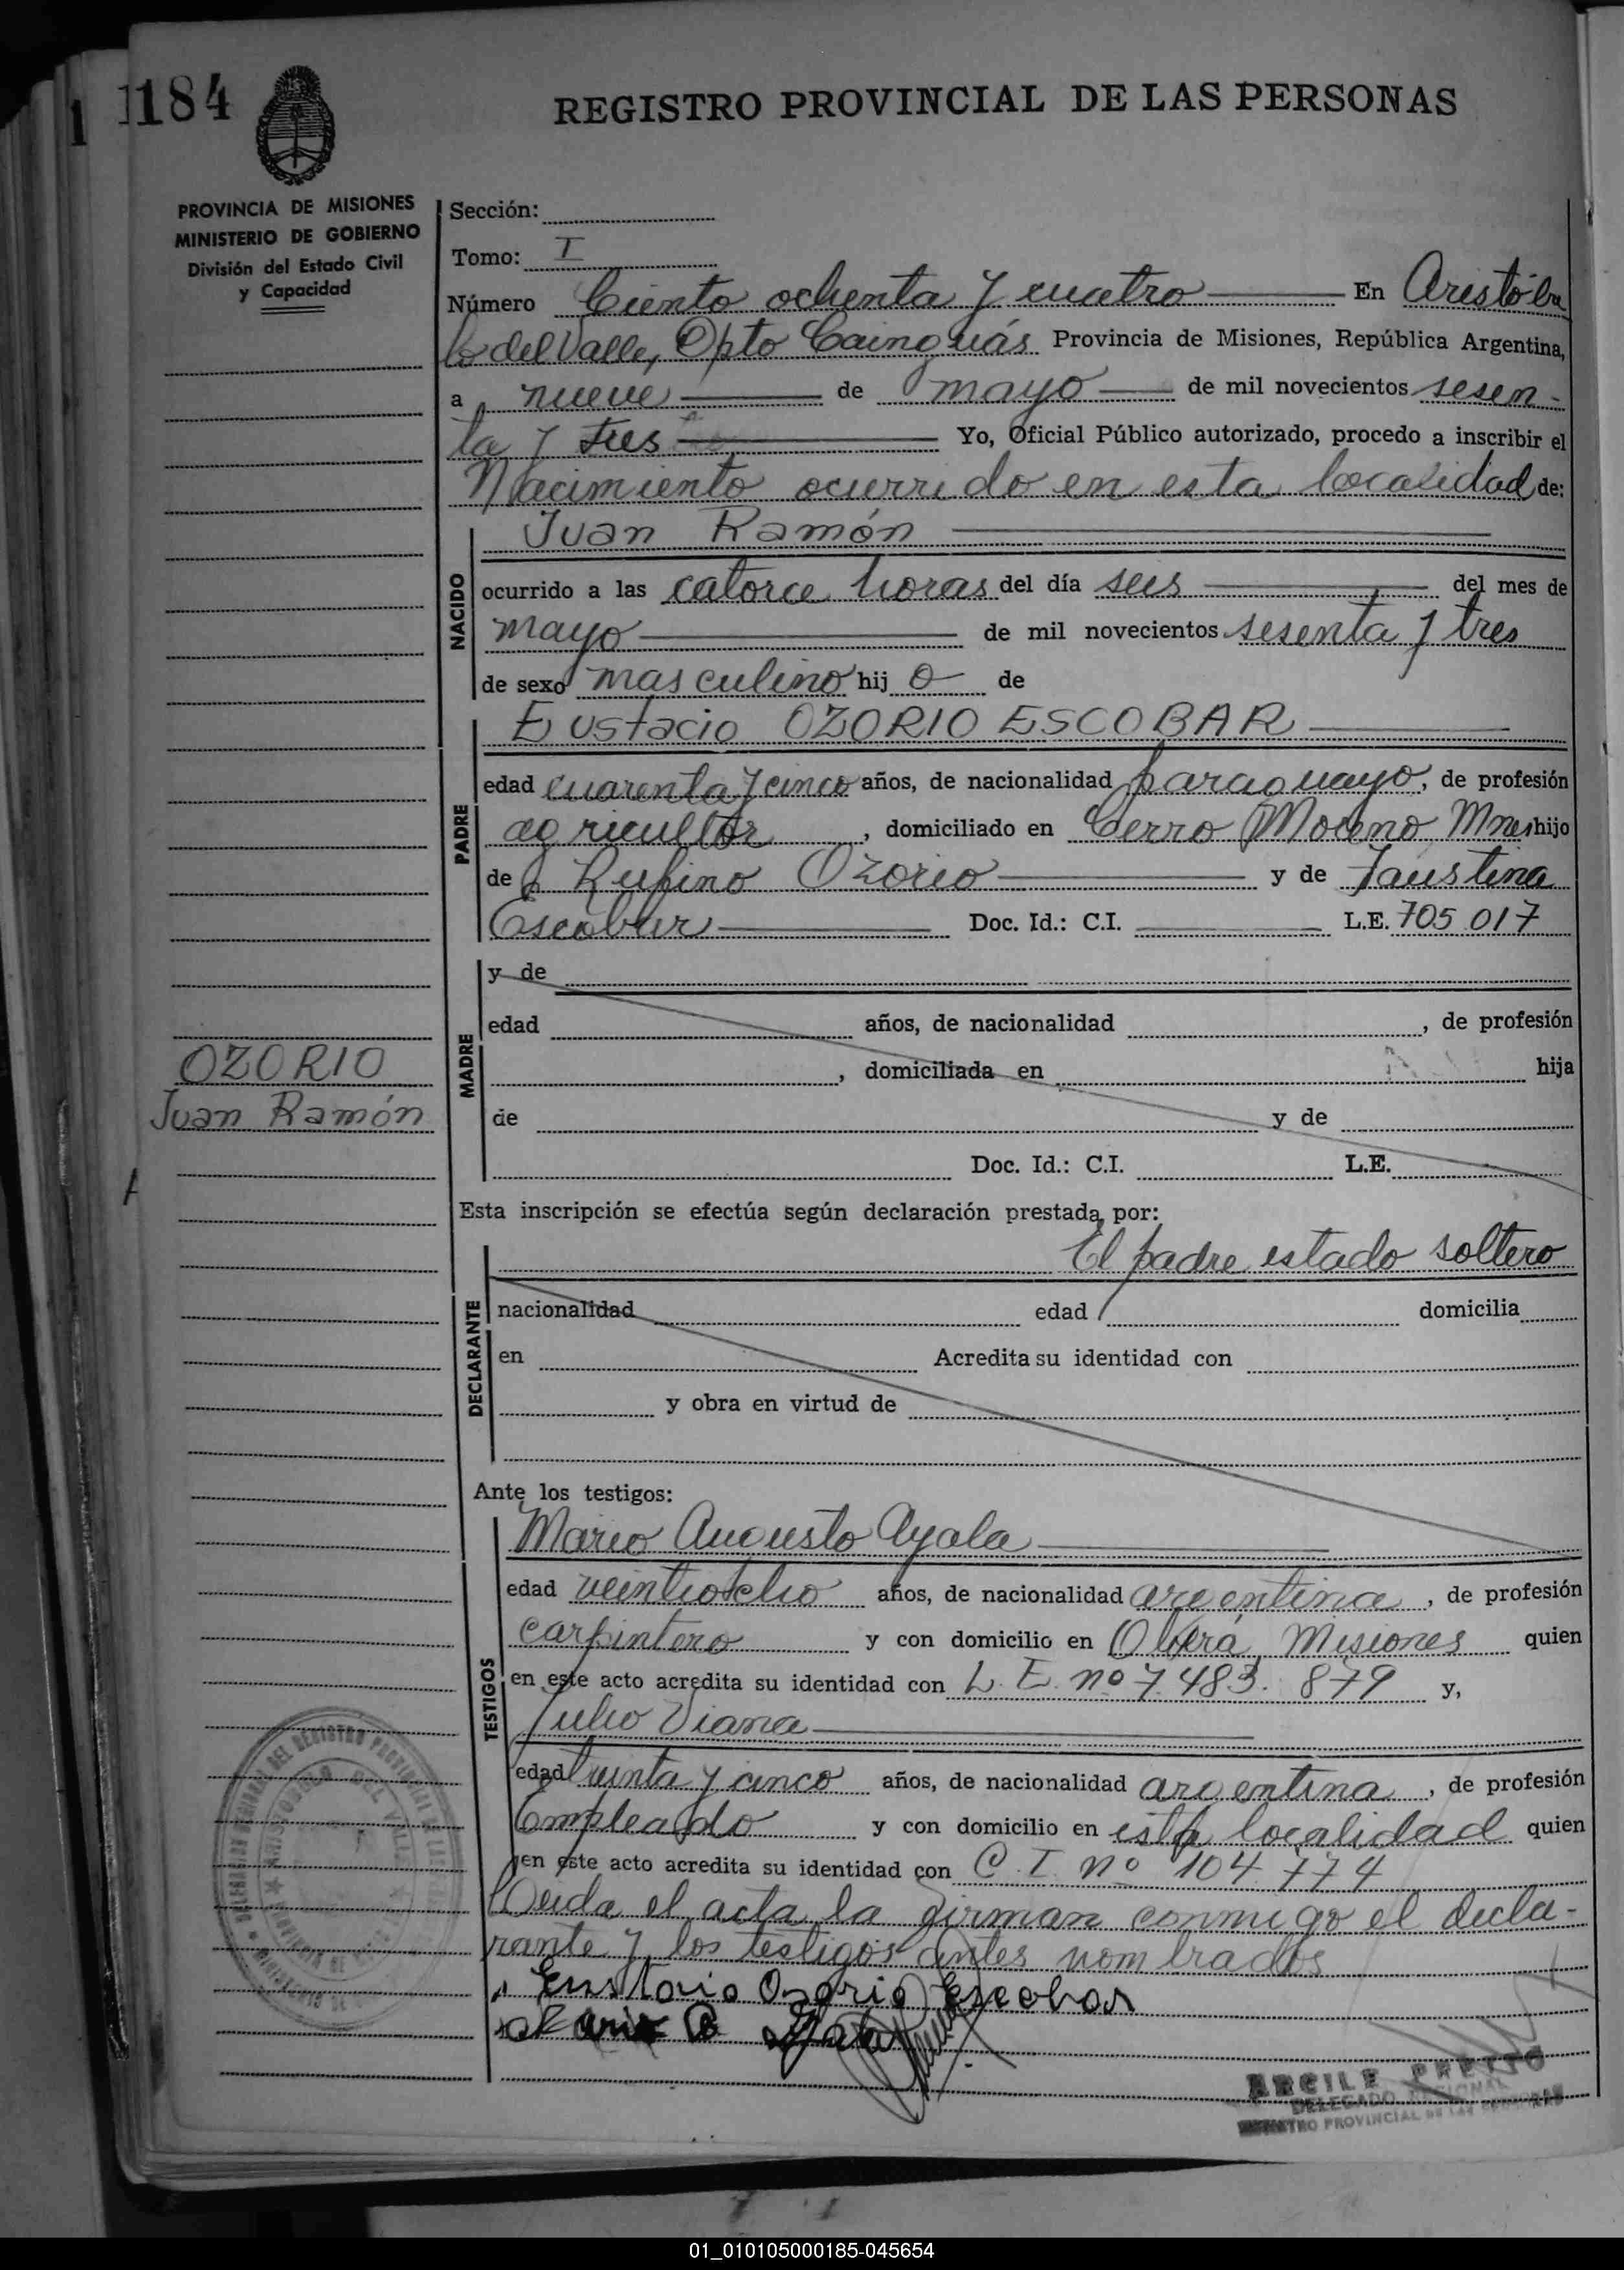 1184
1
REGISTRO PROVINCIAL DE LAS PERSONAS
PROVINCIA DE MISIONES
MINISTERIO DE GOBIERNO
División del Estado Civil
y Capacidad
Sección:
Tomo: I
Número Ciento ochenta y cuatro En Aristóbu
lo del Valle, Dpto Cainguás Provincia de Misiones, República Argentina,
a nueve de mayo de mil novecientos sesen-
ta y tres Yo, Oficial Público autorizado, procedo a inscribir el
Nacimiento ocurrido en esta localidad de:
NACIDO
Juan Ramón
ocurrido a las catorce horas del día seis del mes de
mayo de mil novecientos sesenta y tres
de sexo masculino hij o de
PADRE
Eustacio OZORIO ESCOBAR
edad cuarenta y cinco años, de nacionalidad paraguayo, de profesión
agricultor, domiciliado en Cerro Moreno Mnes hijo
de Rufino Ozorio y de Faustina
Escobar Doc. Id.: C.I. L.E. 705 017
MADRE
y de
edad años, de nacionalidad , de profesión
, domiciliada en hija
de y de
Doc. Id.: C.I. L.E.
OZORIO
Juan Ramón
Esta inscripción se efectúa según declaración prestada por:
El padre estado soltero
DECLARANTE
nacionalidad edad domicilia
en Acredita su identidad con
y obra en virtud de
Ante los testigos:
TESTIGOS
Mario Augusto Ayala
edad veintiocho años, de nacionalidad argentina, de profesión
carpintero y con domicilio en Oberá, Misiones quien
en este acto acredita su identidad con L. E. nº 7.483.879 y,
Julio Viana
edad treinta y cinco años, de nacionalidad argentina, de profesión
Empleado y con domicilio en esta localidad quien
en este acto acredita su identidad con C. I. nº 104.774
Leida el acta la firman conmigo el decla-
rante y los testigos antes nombrados
Eustacio Ozorio Escobar
Mario A Ayala
ARCILE PREITO
DELEGADO REGIONAL
REGISTRO PROVINCIAL DE LAS PERSONAS
01_010105000185-045654